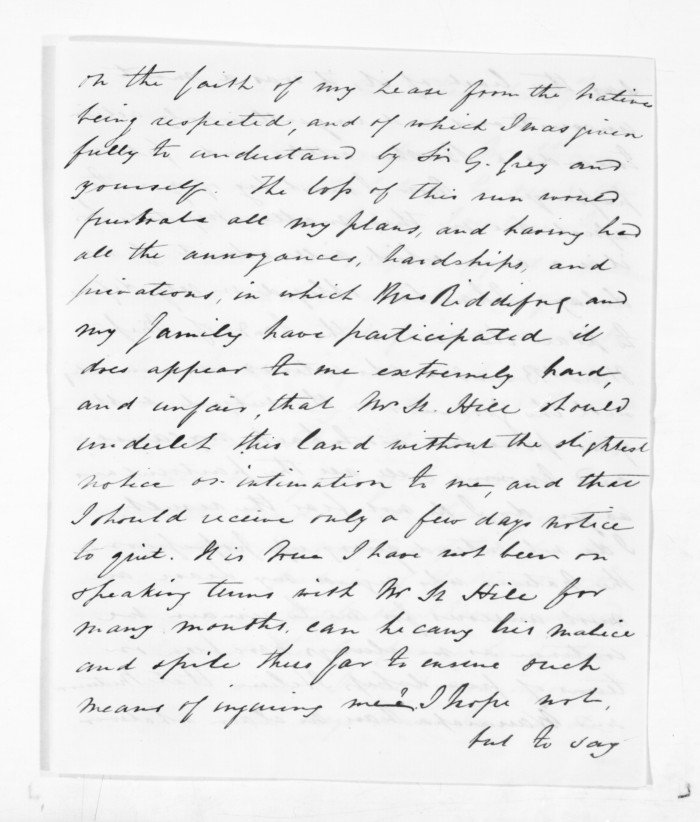 on the faith of my Lease from the Natives
being respected, and of which I was given
fully to understand by Sir G. Grey and
yourself. The loss of this run would
frustrate all my plans, and having had
all the annoyances, hardships, and
privations, in which Mrs Riddiford and
my family have participated it
does appear to me extremely hard,
and unfair, that Mr St. Hill should
underlet this land without the slightest
notice or intimation to me, and that
I should receive only a few days notice
to quit. It is true I have not been on
speaking terms with Mr St Hill for
many months. can he carry his malice
and spite thus far to insure such
means of injuring me? I hope not,
but to say